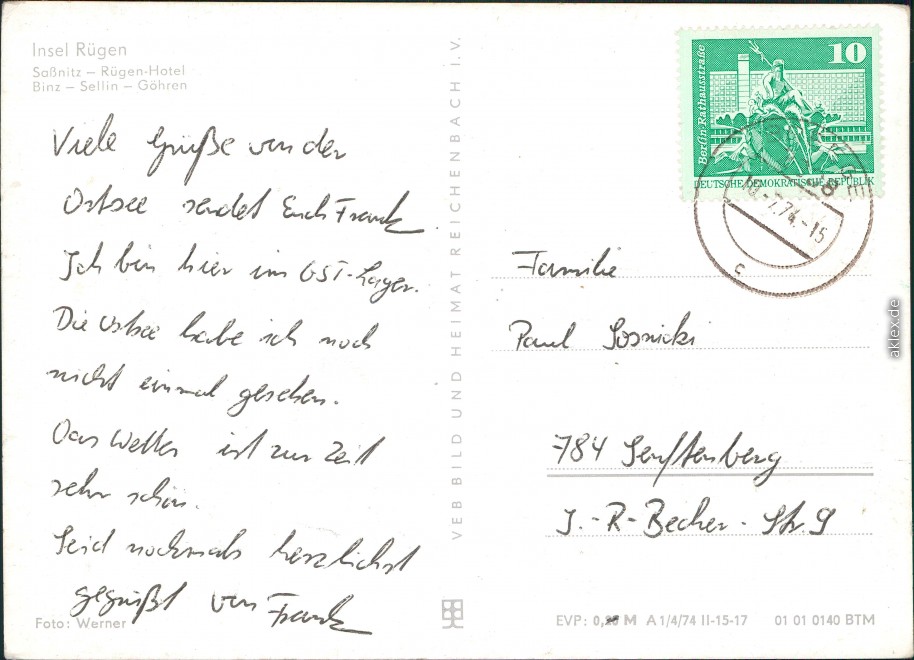 Insel Rügen
Saßnitz – Rügen-Hotel
Binz – Sellin – Göhren
Viele Grüße von der
Ostsee sendet Euch Frank.
Ich bin hier im GST-Lager.
Die Ostsee habe ich noch
nicht einmal gesehen.
Das Wetter ist zur Zeit
sehr schön.
Seid nochmals herzlichst
gegrüßt von Frank
Foto: Werner
VEB BILD UND HEIMAT REICHENBACH I. V.
10
Berlin·Rathausstraße
DEUTSCHE DEMOKRATISCHE REPUBLIK
.7.74.-15
c
Familie
Paul Sosnicki
784 Senftenberg
J.-R-Becher-Str. 9
EVP: 0, M A 1/4/74 II-15-17 01 01 0140 BTM
aklex.de